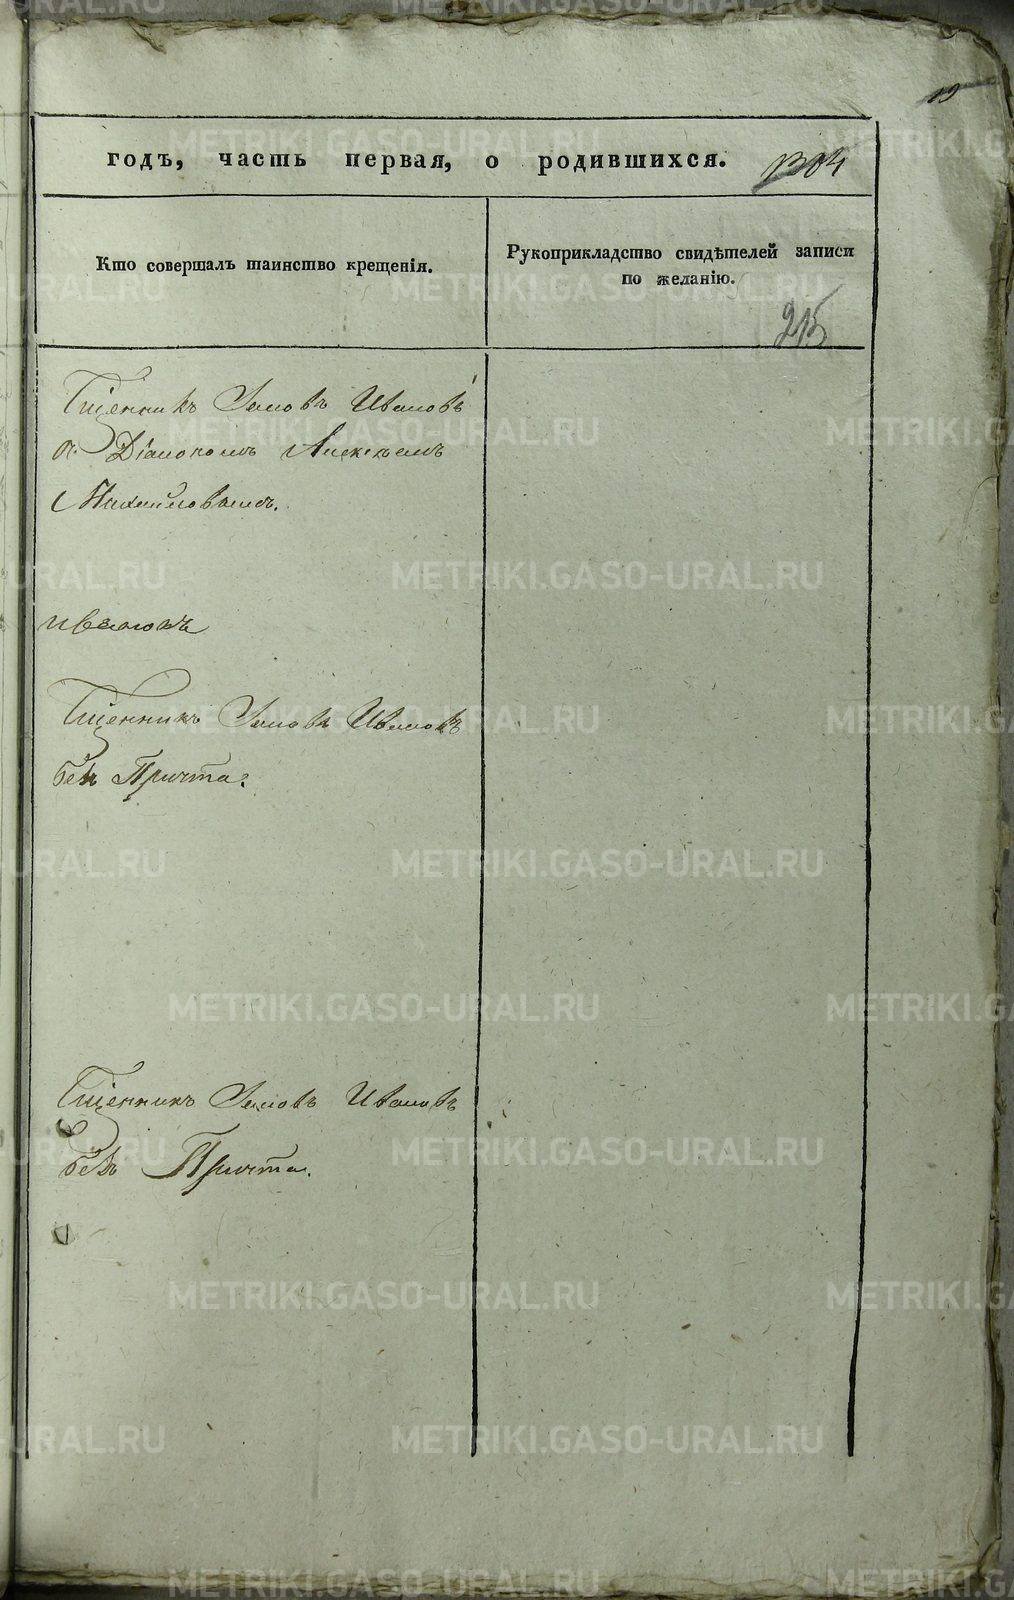 19
годъ, часть первая, о родившихся.
Кто совершалъ таинство крещенія.
Рукоприкладство свидѣтелей записи
по желанію.
215
Сщенникъ Іаковъ Ивановъ
с Діакономъ Алексѣемъ
Михайловымъ.
Сщенникъ Іаковъ Ивановъ
безъ Причта.
Сщенникъ Іаковъ Ивановъ
безъ Причта.
METRIKI.GASO-URAL.RU